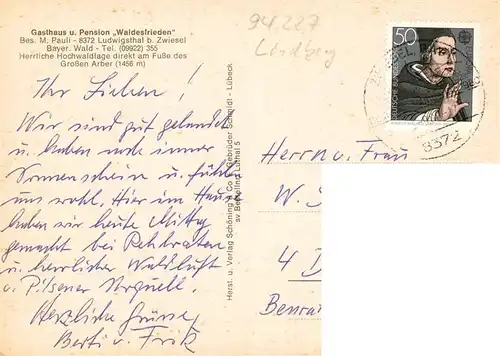 Gasthaus u. Pension „Waldesfrieden"
Bes. M. Pauli - 8372 Ludwigsthal b. Zwiesel
Bayer. Wald - Tel. (09922) 355
Herrliche Hochwaldlage direkt am Fuße des
Großen Arber (1456 m)
94.227
Ihr Lieben!
Wir sind gut gelandet
u. haben noch immer
Sonnenschein u. fühlen
uns wohl. Hier im Haus
haben wir heute Mittag
gemacht bei Rehbraten
u. herrlicher Waldluft
u. Pilsener Urquell.
Herzliche Grüsse
Berti u. Fritz
Herst. u. Verlag Schöning & Co + Gebrüder Schmidt - Lübeck
50
DEUTSCHE BUNDESPOST
8372
Herrn u. Frau
W.
4 D
Benra